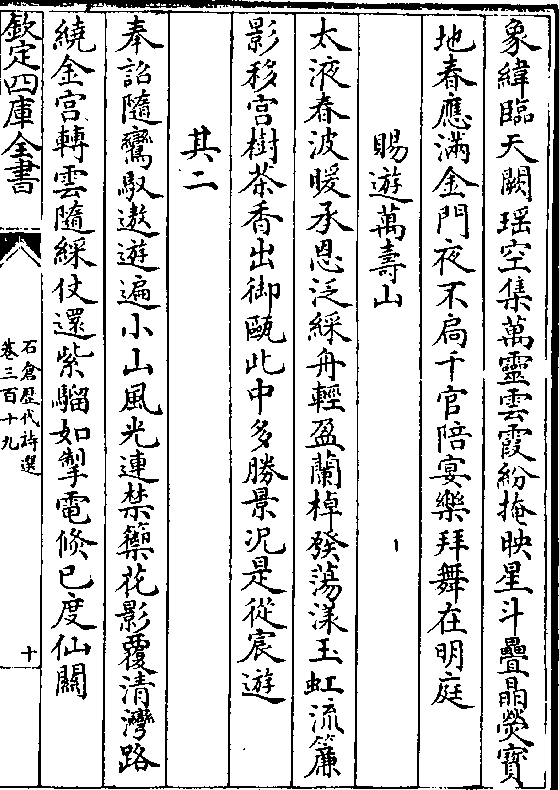 象緯臨天闕瑶空集萬靈雲霞紛掩映星斗疊晶熒寳
地春應滿金門夜不扃千官陪宴樂拜舞在明庭
賜遊萬壽山
太液春波暖承恩泛綵舟輕盈蘭棹發蕩漾玉虹流簾
影移宫樹茶香出御甌此中多勝景况是從宸遊
其二
奉詔隨鸞馭遨遊遍小山風光連禁籞花影覆清灣路
繞金宫轉雲隨綵仗還紫騮如掣電倐已度仙關
欽定四庫全書
石倉歷代詩選
卷三百十九
十